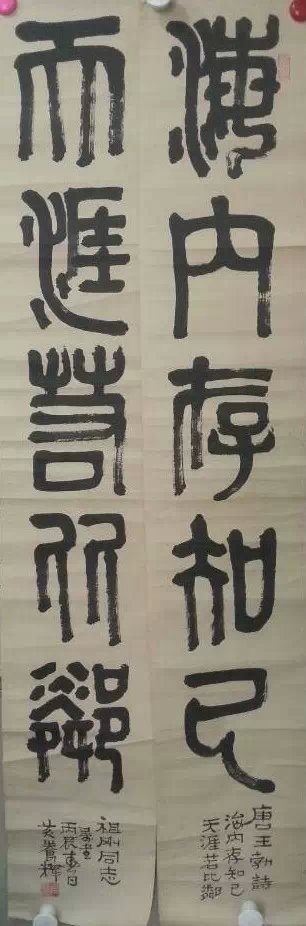 海内存知己
唐王勃詩
海内存知己
天涯若比鄰
天涯若比鄰
同志
丙辰春日